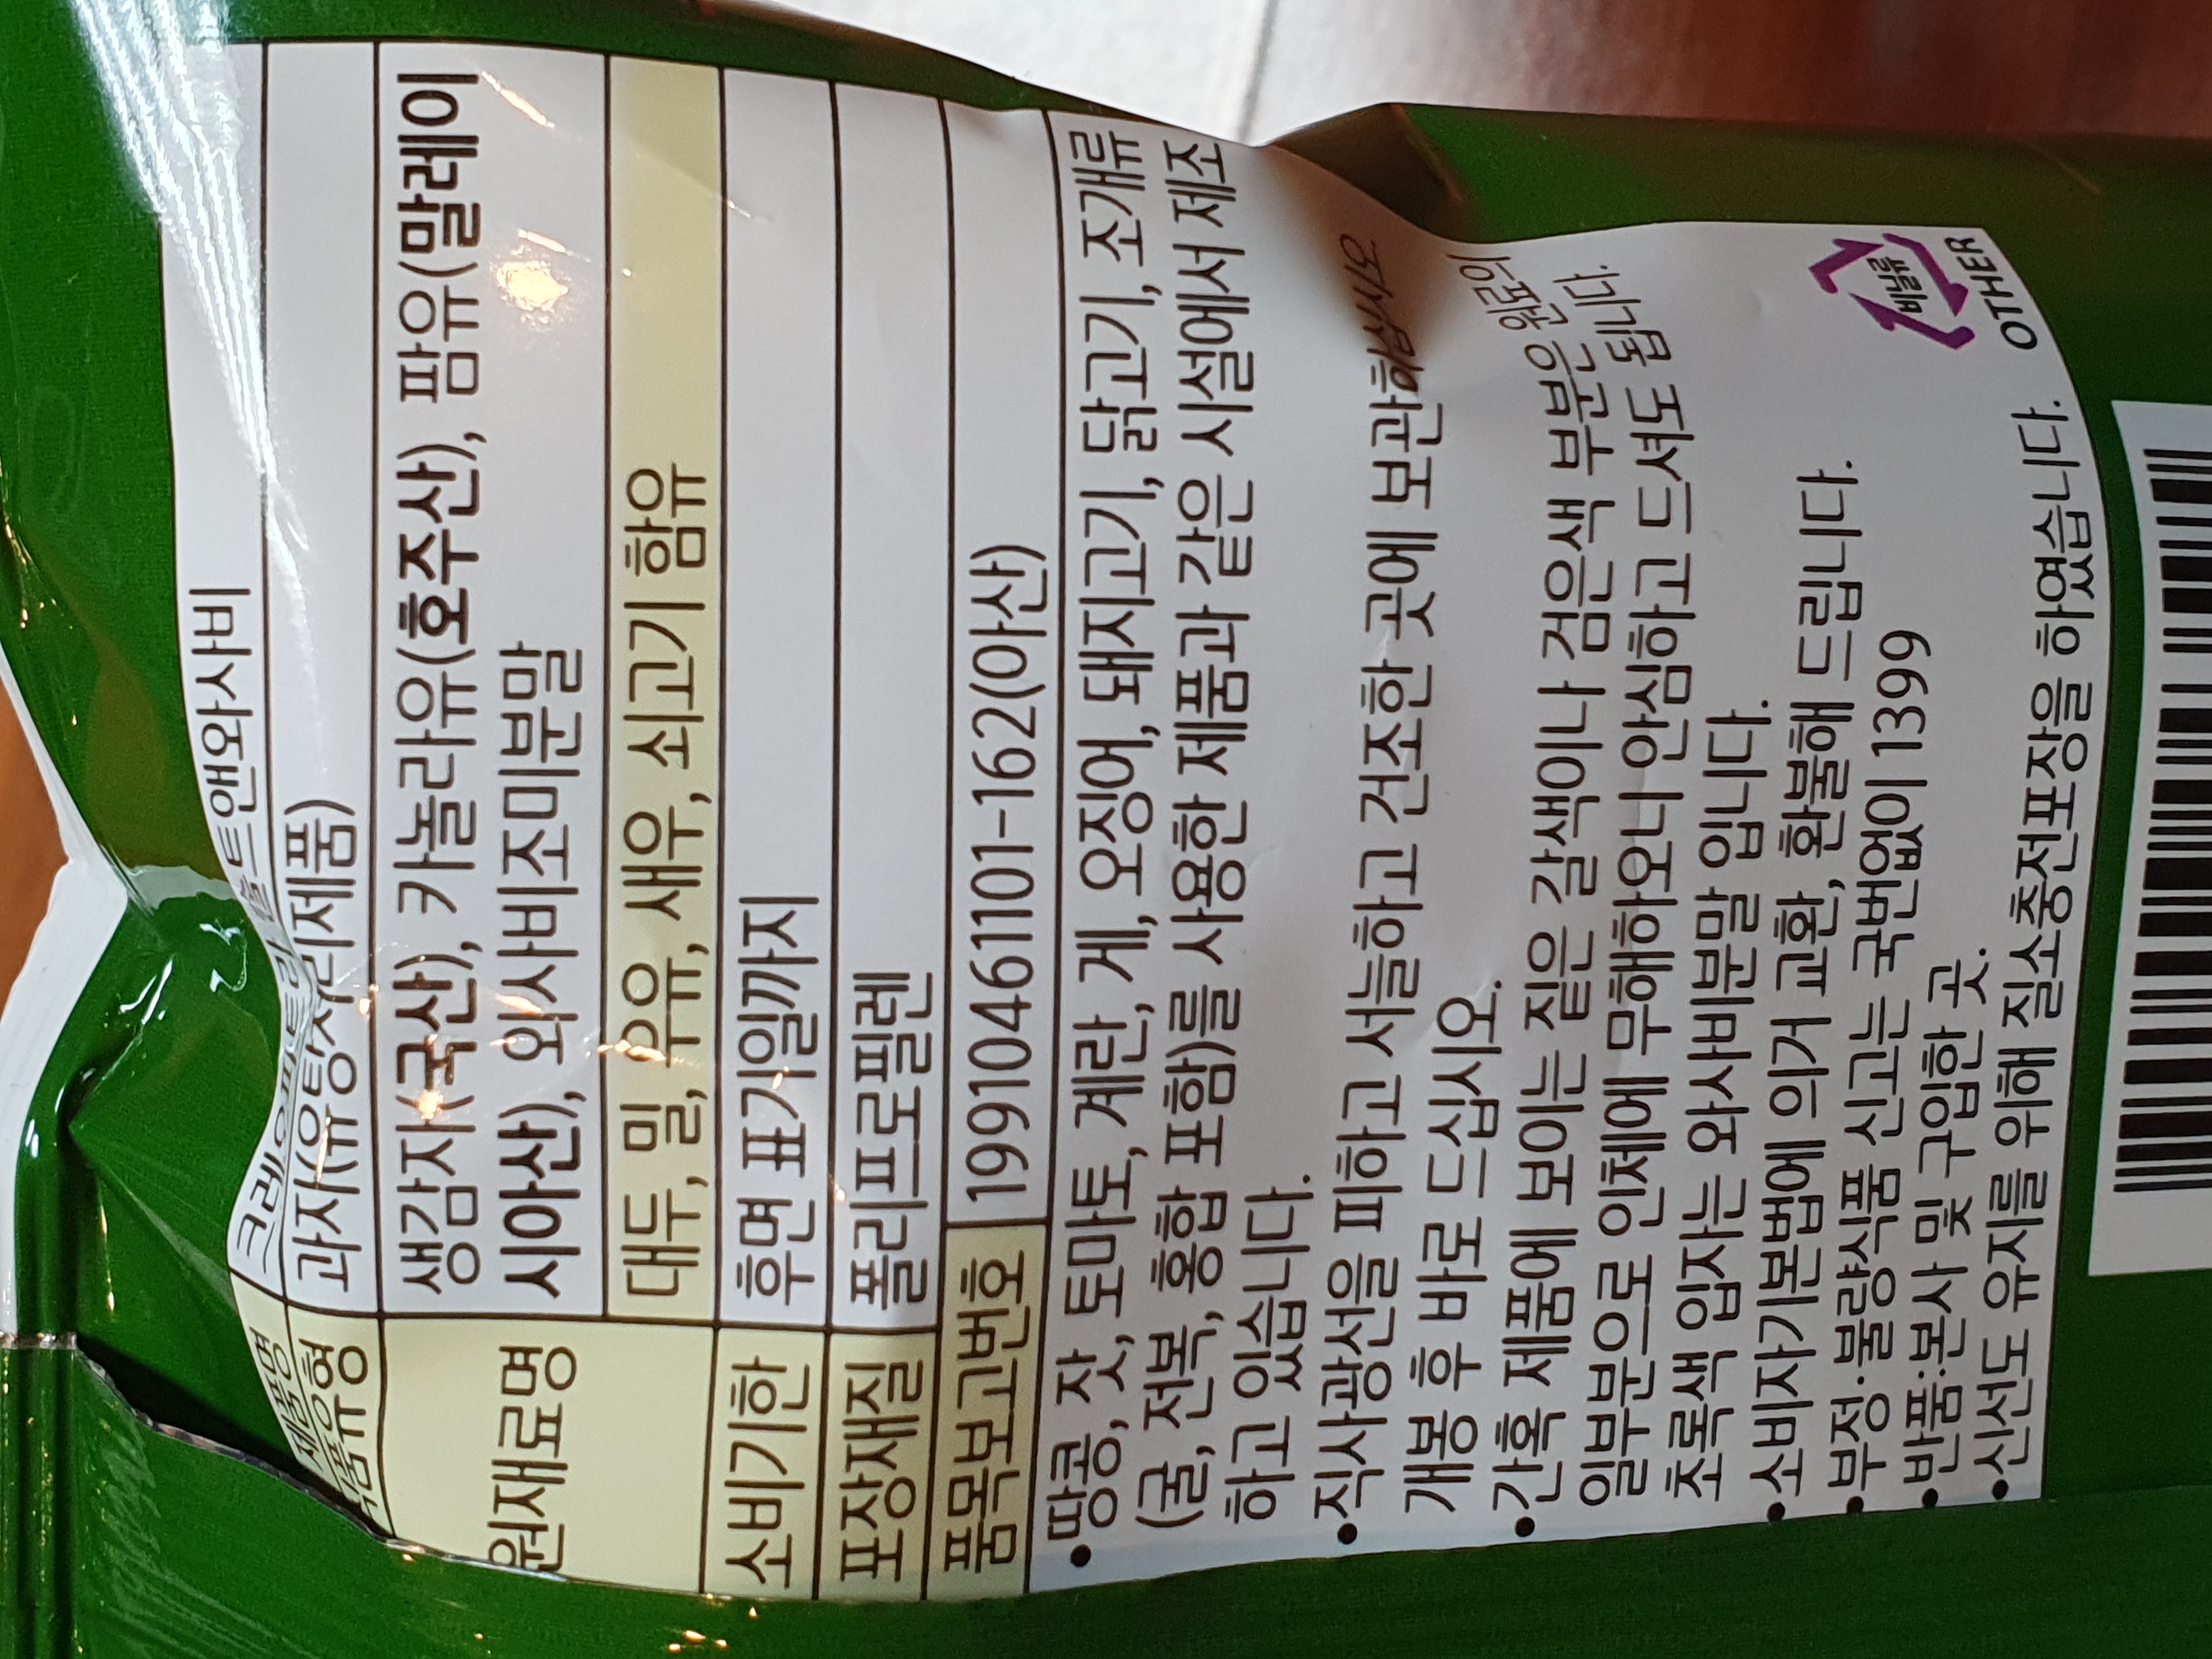 제품명 크레이지 솔트앤와사비
식품유형 과자(유탕처리제품)
원재료명 생감자(국산), 카놀라유(호주산), 팜유(말레이
시아산), 와사비조미분말
대두, 밀, 우유, 새우, 쇠고기 함유
소비기한 후면 표기일까지
포장재질 폴리프로필렌
품목보고번호 19910461101-162(아산)
•땅콩, 잣, 토마토, 계란, 게, 오징어, 돼지고기, 닭고기, 조개류
(굴, 전복, 홍합 포함)를 사용한 제품과 같은 시설에서 제조
하고 있습니다.
•직사광선을 피하고 서늘하고 건조한 곳에 보관하십시오.
개봉 후 바로 드십시오.
•간혹 제품에 보이는 짙은 갈색이나 검은색 부분은 원료의
일부분으로 인체에 무해하오니 안심하고 드셔도 됩니다.
초록색 입자는 와사비분말 입니다.
•소비자기본법에 의거 교환, 환불해 드립니다.
•부정·불량식품 신고는 국번없이 1399
•반품:본사 및 구입한 곳.
•신선도 유지를 위해 질소충전포장을 하였습니다.
비닐류
OTHER